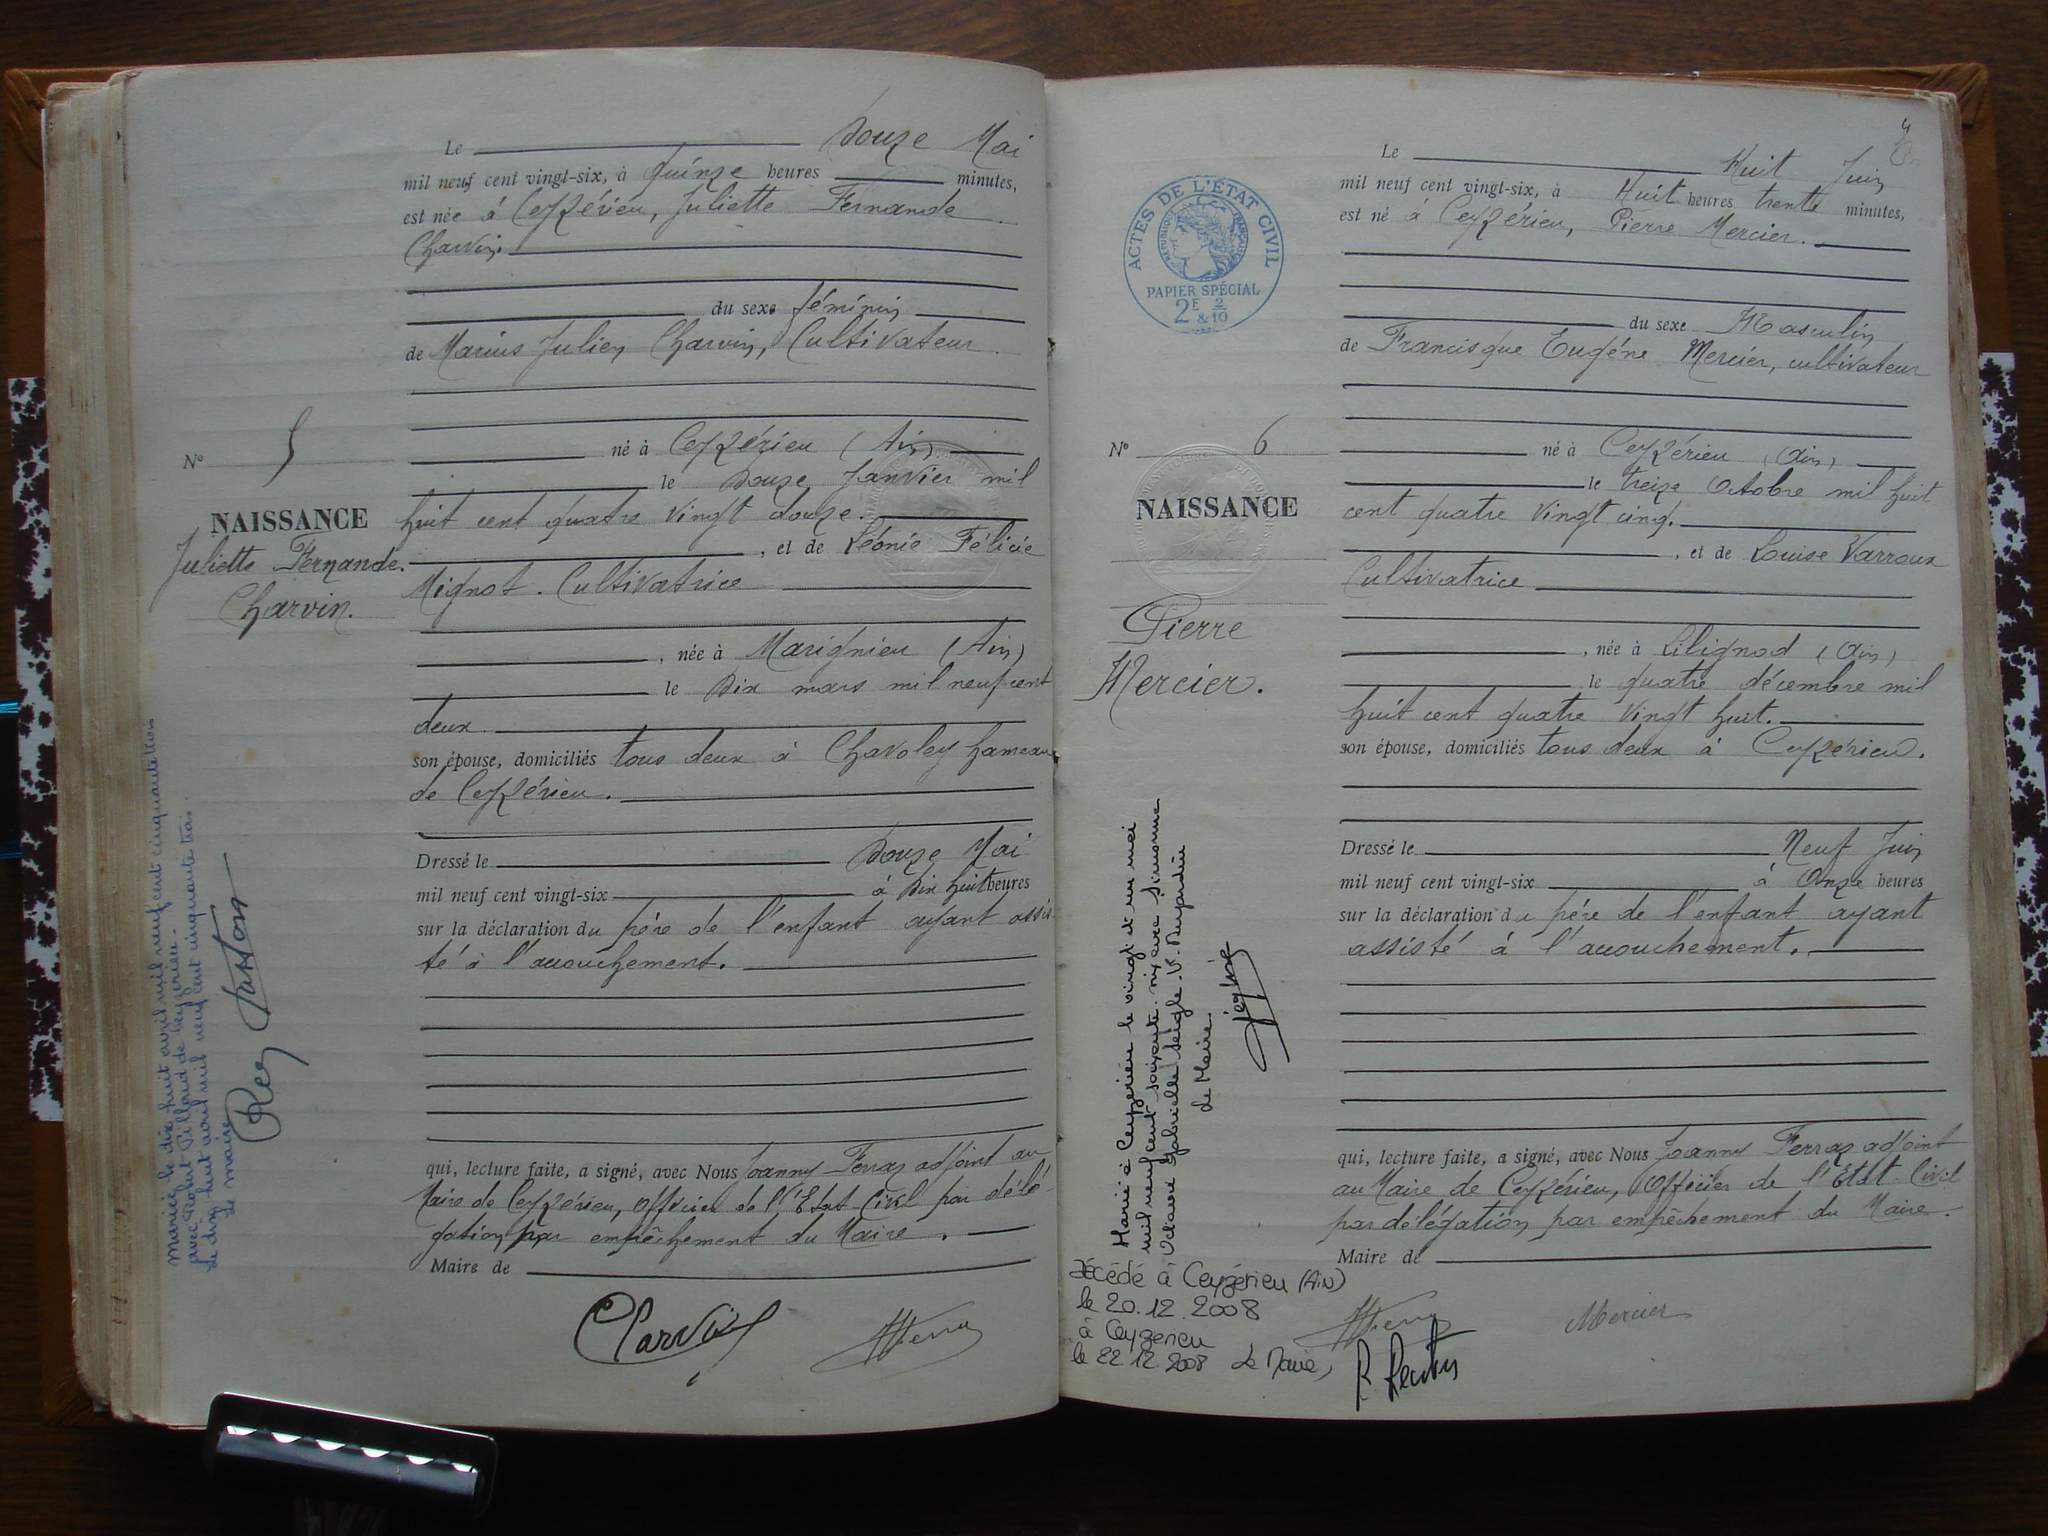 Le Douze Mai
mil neuf cent vingt-six, à quinze heures minutes,
est née à Ceyzérieu, Juliette Fernande
Charvin.
du sexe féminin
de Marius Julien Charvin, Cultivateur
né à Ceyzérieu (Ain)
le Douze Janvier mil
huit cent quatre vingt douze.
, et de Léonie Félicie
Mignot. Cultivatrice
, née à Marignieu (Ain)
le Dix mars mil neuf cent
deux
son épouse, domiciliés tous deux à Chavoley hameau
de Ceyzérieu.
Dressé le Douze Mai
mil neuf cent vingt-six à Dix huit heures
sur la déclaration du père de l'enfant ayant assis
té à l'accouchement.
qui, lecture faite, a signé, avec Nous Joanny Ferraz adjoint au
Maire de Ceyzérieu, Officier de l'Etat Civil par délé-
gation par empêchement du Maire.
Maire de
Charvin
N° 5
NAISSANCE
Juliette Fernande
Charvin.
Mariée le dix huit avril mil neuf cent cinquante trois
avec Robert Pilloud de Ceyzérieu.
Le dix huit avril mil neuf cent cinquante trois.
Le maire
Rey
4
ACTES DE L'ÉTAT CIVIL
PAPIER SPÉCIAL
2F & 2/10
N° 6
NAISSANCE
Pierre
Mercier.
Marié à Ceyzérieu le vingt et un mai
mil neuf cent soixante six avec Simonne
Gabrielle
Le Maire
Décédé à Ceyzérieu (Ain)
le 20.12.2008
à Ceyzérieu
le 22.12.2008 Le Maire,
Le Huit Juin
mil neuf cent vingt-six, à Huit heures trente minutes,
est né à Ceyzérieu, Pierre Mercier.
du sexe Masculin
de Francisque Eugène Mercier, cultivateur
né à Ceyzérieu (Ain)
le treize Octobre mil huit
cent quatre vingt cinq.
, et de Louise Varroux
Cultivatrice
, née à Lilignod (Ain)
le quatre décembre mil
huit cent quatre vingt huit.
son épouse, domiciliés tous deux à Ceyzérieu.
Dressé le Neuf Juin
mil neuf cent vingt-six à Onze heures
sur la déclaration du père de l'enfant ayant
assisté à l'accouchement.
qui, lecture faite, a signé, avec Nous Joanny Ferraz adjoint
au Maire de Ceyzérieu, Officier de l'Etat-Civil
par délégation, par empêchement du Maire.
Maire de
Mercier